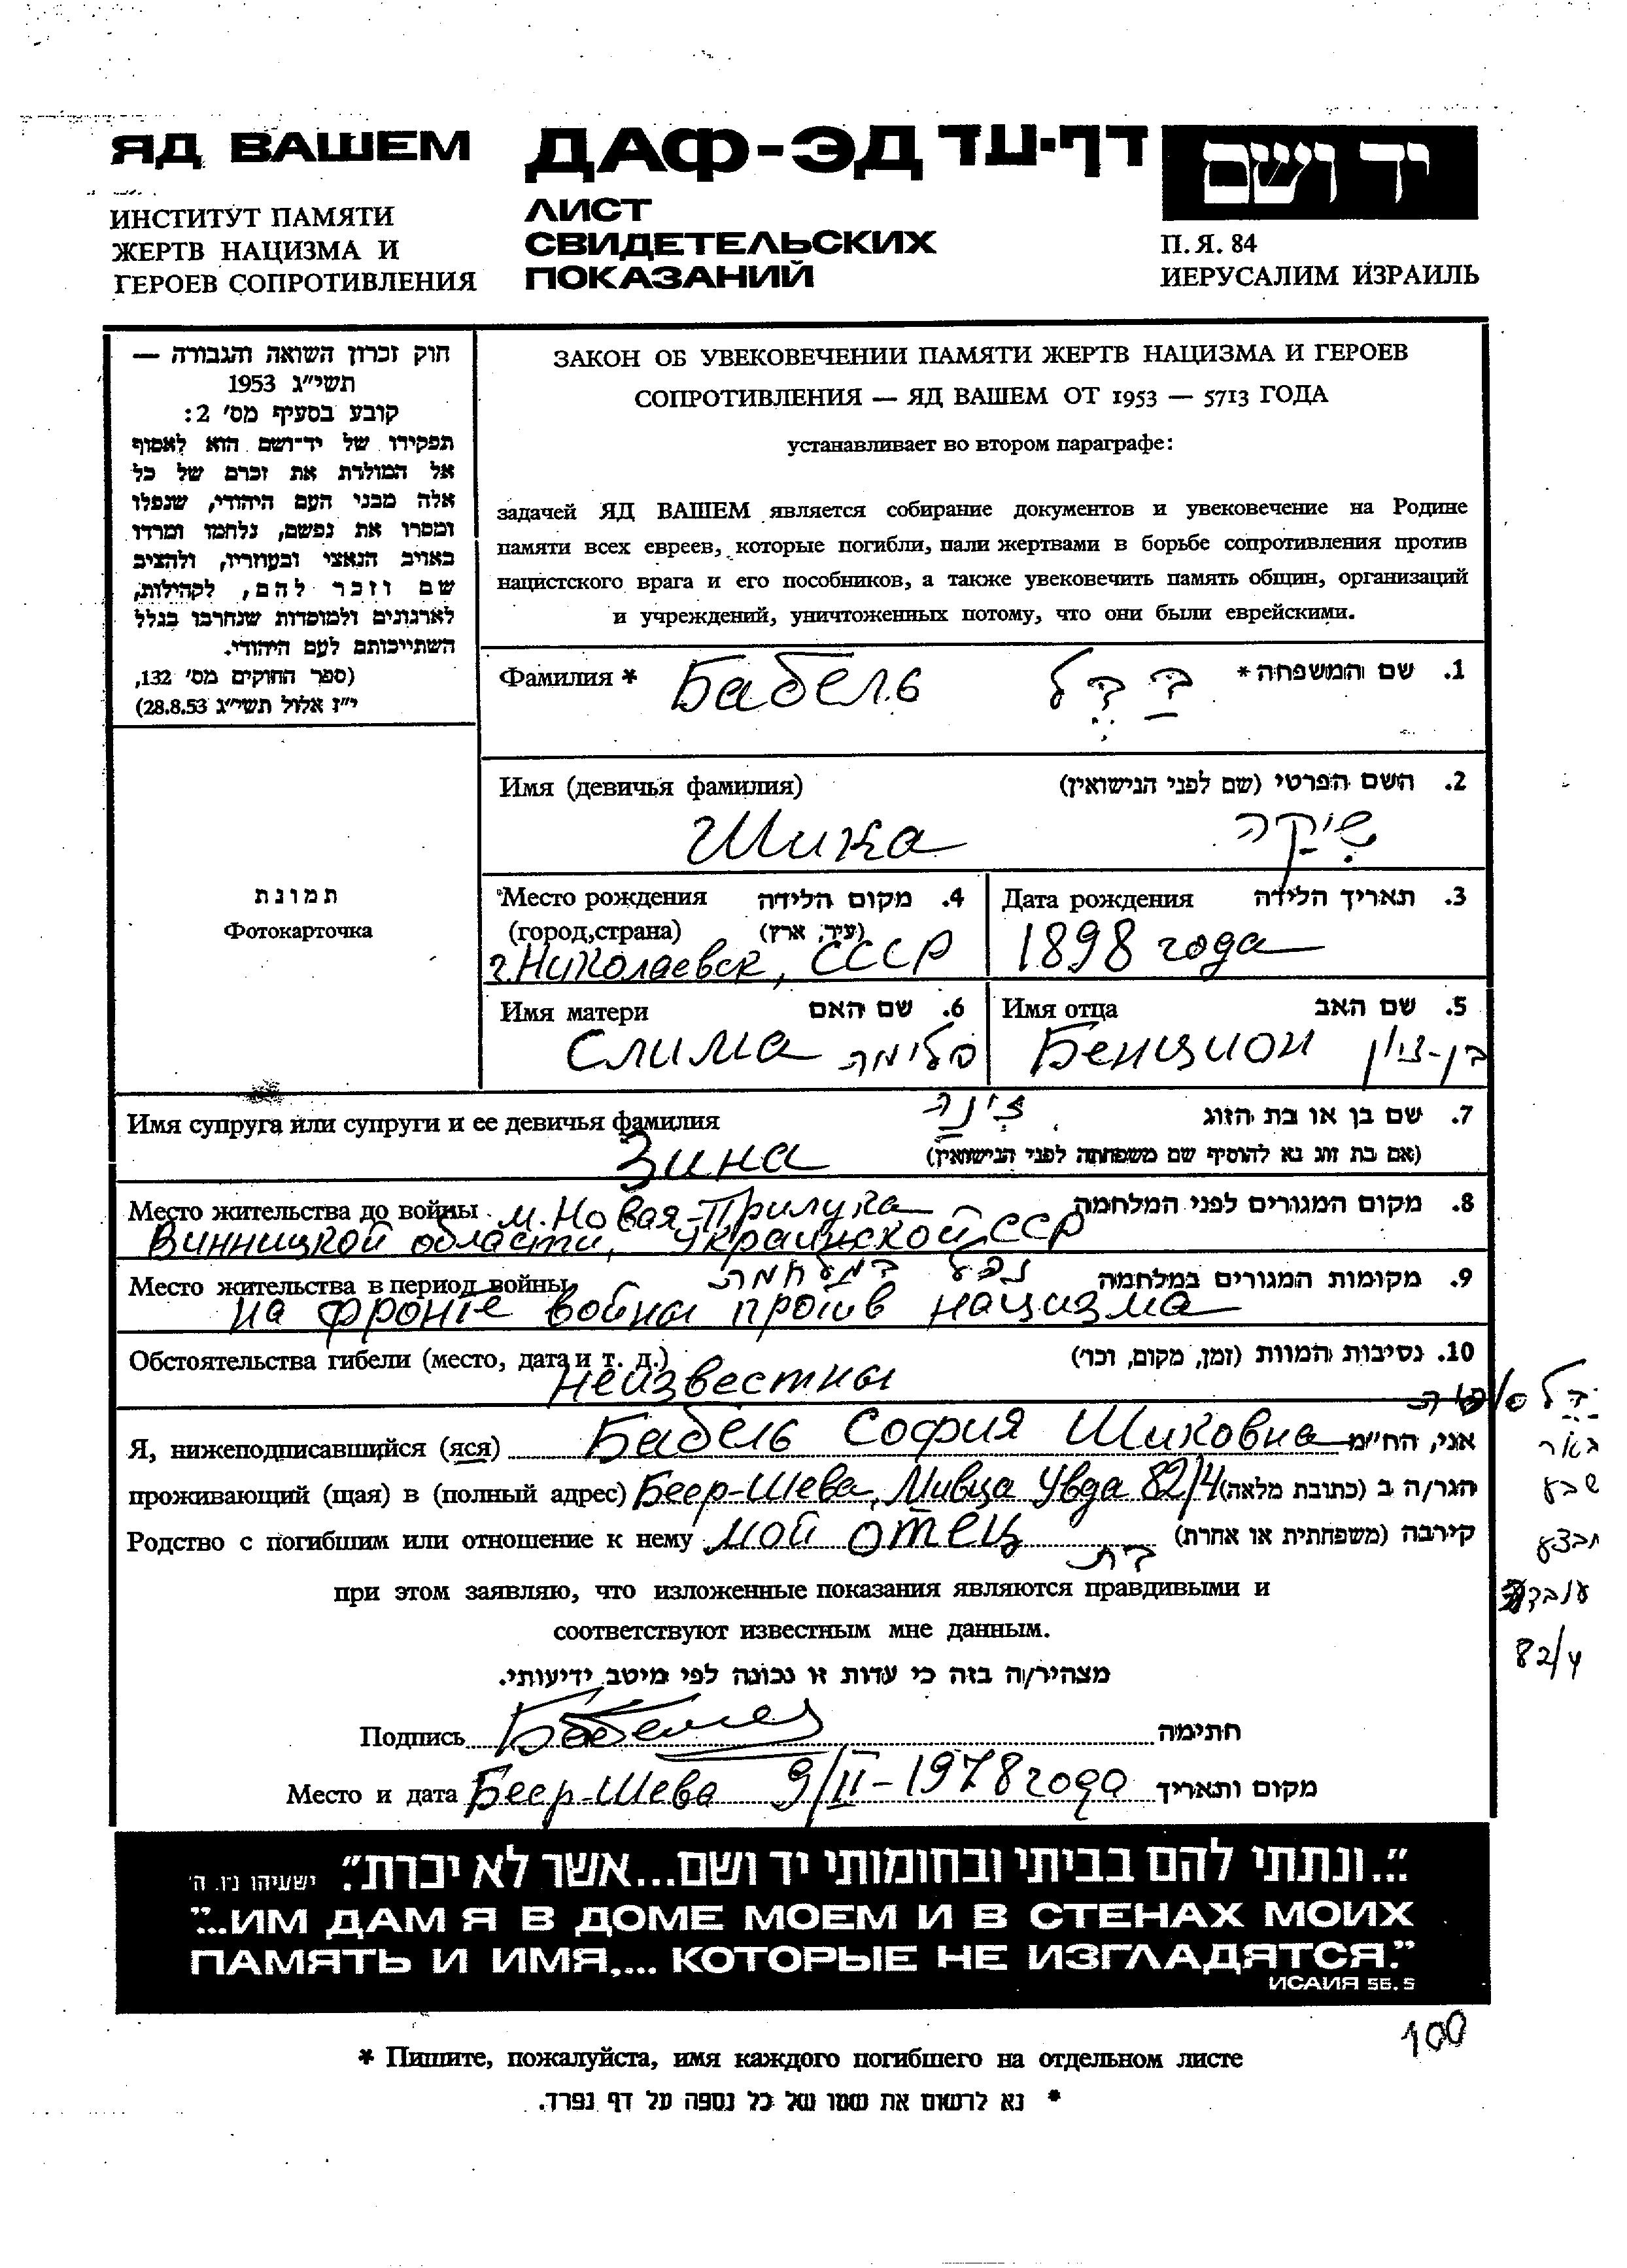 ЯД ВАШЕМ
ИНСТИТУТ ПАМЯТИ
ЖЕРТВ НАЦИЗМА И
ГЕРОЕВ СОПРОТИВЛЕНИЯ
ДАФ-ЭД דף-עד
ЛИСТ
СВИДЕТЕЛЬСКИХ
ПОКАЗАНИЙ
יד ושם
П. Я. 84
ИЕРУСАЛИМ ИЗРАИЛЬ
חוק זכרון השואה והגבורה —
תשי״ג 1953
קובע בסעיף מס׳ 2:
תפקידו של יד־ושם הוא לאסוף
אל המולדת את זכרם של כל
אלה מבני העם היהודי, שנפלו
ומסרו את נפשם, נלחמו ומרדו
באויב הנאצי ובעוזריו, ולהציב
שם וזכר להם, לקהילות,
לארגונים ולמוסדות שנחרבו בגלל
השתייכותם לעם היהודי.
(ספר החוקים מס׳ 132,
י״ז אלול תשי״ג 28.8.53)
תמונת
Фотокарточка
ЗАКОН ОБ УВЕКОВЕЧЕНИИ ПАМЯТИ ЖЕРТВ НАЦИЗМА И ГЕРОЕВ
СОПРОТИВЛЕНИЯ — ЯД ВАШЕМ ОТ 1953 — 5713 ГОДА
устанавливает во втором параграфе:
задачей ЯД ВАШЕМ является собирание документов и увековечение на Родине
памяти всех евреев, которые погибли, пали жертвами в борьбе сопротивления против
нацистского врага и его пособников, а также увековечить память общин, организаций
и учреждений, уничтоженных потому, что они были еврейскими.
Фамилия * Бабель בַּבֶּל 1. שם המשפחה *
Имя (девичья фамилия) 2. השם הפרטי (שם לפני הנישואין)
Шика שִׁיקַה
Место рождения 4. מקום הלידה
(город,страна) (עיר, ארץ)
г.Николаевск, СССР
Дата рождения 3. תאריך הלידה
1898 года
Имя матери 6. שם האם
Слима סלימה
Имя отца 5. שם האב
Бенцион בן-ציון
Имя супруга или супруги и ее девичья фамилия זִינָה 7. שם בן או בת הזוג
Зина (אם בת זוג נא להוסיף שם משפחתה לפני הנישואין)
Место жительства до войны м. Новая-Прилука 8. מקום המגורים לפני המלחמה
Винницкой области, Украинской ССР
Место жительства в период войны נפל במלחמה 9. מקומות המגורים במלחמה
на фронте войны против нацизма
Обстоятельства гибели (место, дата и т. д.) 10. נסיבות המוות (זמן, מקום, וכו׳)
неизвестны
Я, нижеподписавшийся (яся) Бабель София Шиковна אני, הח״מ
проживающий (щая) в (полный адрес) Беер-Шева, Мивца Увда 82/4 הגר/ה ב (כתובת מלאה)
Родство с погибшим или отношение к нему мой отец קירבה (משפחתית או אחרת)
בת
בבל סופיה
באר
שבע
מבצע
עובדה
82/4
при этом заявляю, что изложенные показания являются правдивыми и
соответствуют известным мне данным.
מצהיר/ה בזה כי עדות זו נכונה לפי מיטב ידיעותי.
Подпись חתימה
Место и дата Беер-Шева 9/II-1978 года מקום ותאריך
״...ונתתי להם בביתי ובחומותי יד ושם...אשר לא יכרת״. ישעיהו נ״ו. ה׳
”...ИМ ДАМ Я В ДОМЕ МОЕМ И В СТЕНАХ МОИХ
ПАМЯТЬ И ИМЯ,... КОТОРЫЕ НЕ ИЗГЛАДЯТСЯ.”
ИСАИЯ 56.5
100
* Пишите, пожалуйста, имя каждого погибшего на отдельном листе
* נא לרשום את שמו של כל נספה על דף נפרד.